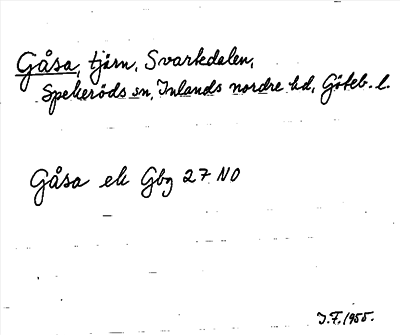 Gåsa, tjärn, Svartedalen,
Spekeröds sn, Inlands nordre hd, Göteb. l.
Gåsa ek Gbg 27 NO
J.F. 1955.